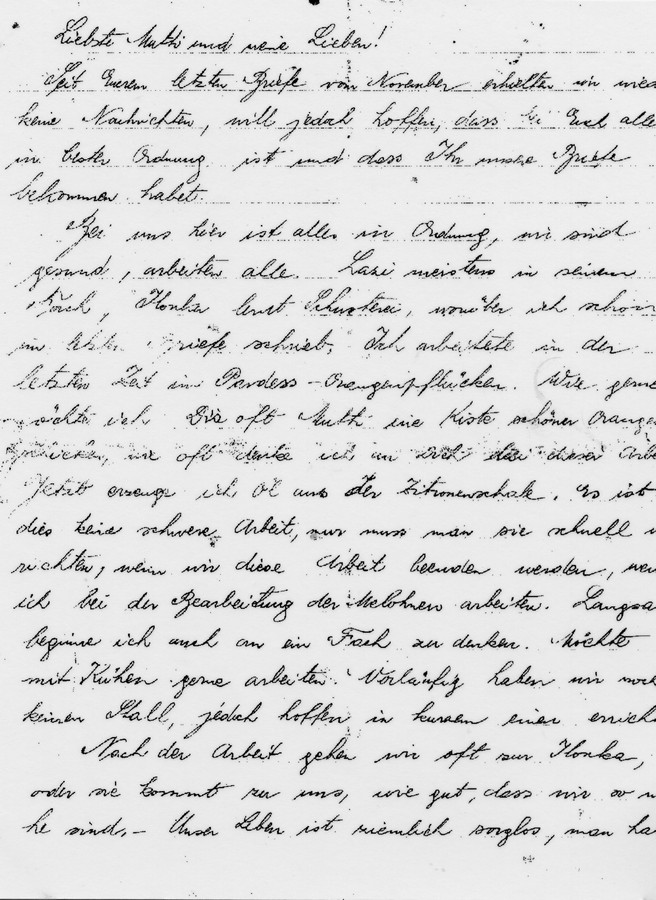 Liebste Mutti und meine Lieben!
Seit Eueren letzten Briefe vom November erhielten wir wied
keine Nachrichten, will jedoch hoffen, dass bei Euch alle
in bester Ordnung ist und dass Ihr unsere Briefe
bekommen habet.
Bei uns hier ist alles in Ordnung, wir sind
gesund, arbeiten alle. Lazi meistens in seinem
Fach, Ilonka lernt Schusterei, worüber ich schon
im letzten Briefe schrieb. Ich arbeitete in der
letzten Zeit im Pardess-Orangenpflücken. Wie gerne
möchte ich Dir oft Mutti eine Kiste schöner Orange
schicken, wie oft denke ich an Dich bei dieser Arbe
Jetzt erzeuge ich Öl aus der Zitronenschale. Es ist
dies keine schwere Arbeit, nur muss man sie schnell
richten, wenn wir diese Arbeit beenden werden, wer
ich bei der Bearbeitung der Melohnen arbeiten. Langsa
beginne ich auch an ein Fach zu denken. Möchte
mit Kühen gerne arbeiten. Vorläufig haben wir noc
keinen Stall, jedoch hoffen in kurzem einen errich
Nach der Arbeit gehen wir oft zur Ilonka,
oder sie kommt zu uns, wie gut, dass wir so n
he sind.- Unser Leben ist ziemlich sorglos, man ha